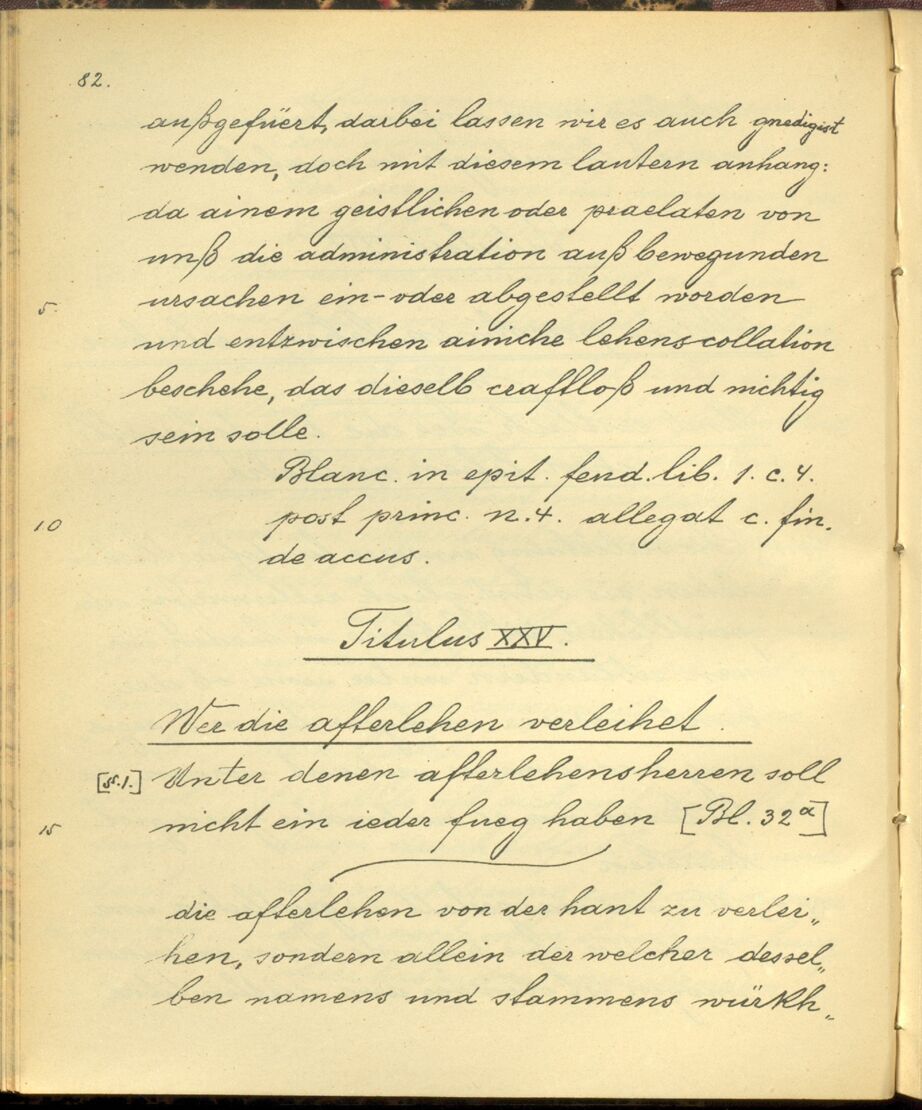 82.
außgefüert, darbei lassen wir es auch gnedigist
wenden, doch mit diesem lautern anhang:
da ainem geistlichen oder praelaten von
unß die administration auß bewegunden
5. ursachen ein- oder abgestellt worden
und entzwischen ainiche lehenscollation
beschehe, das dieselb craftloß und nichtig
sein solle.
Blanc. in epit. feud. lib. 1. c. 4.
10 post princ. n. 4. allegat c. fin.
de accus.
Titulus XXV.
Wer die afterlehen verleihet.
[§.1.] Unter denen afterlehensherren soll
15 nicht ein ieder fueg haben [Bl. 32a]
die afterlehen von der hant zu verlei„
hen, sondern allein der welcher dessel„
ben namens und stammens würkh„